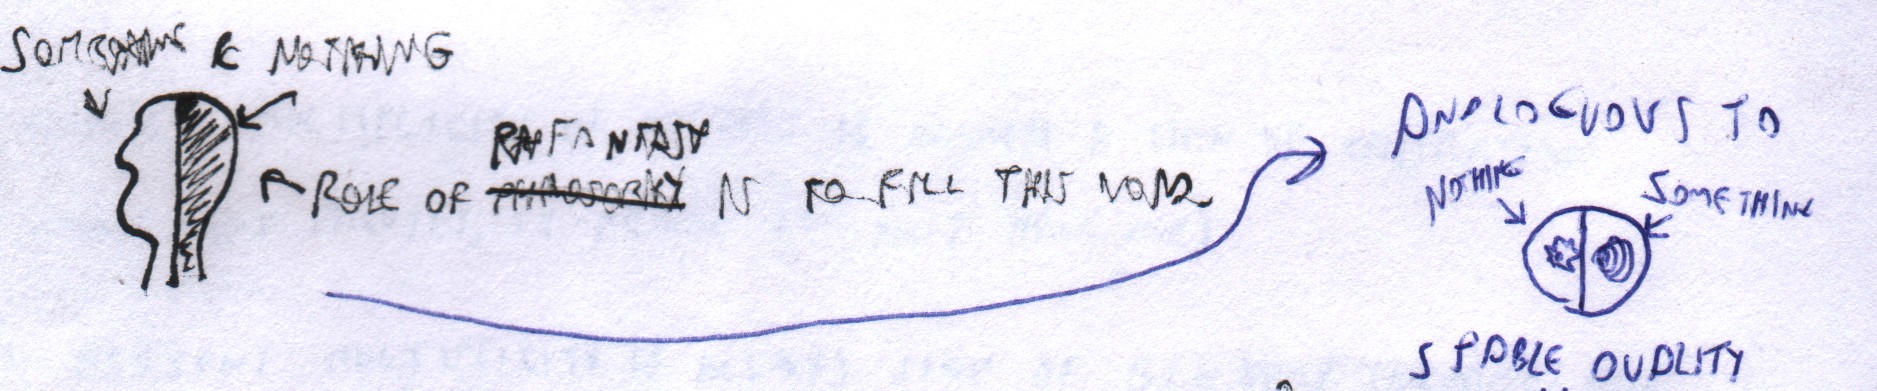 SOMETHING & NOTHING
FANTASY
ROLE OF PHILOSOPHY IS TO FILL THIS VOID
ANALOGUOUS TO
NOTHING
SOMETHING
STABLE DUALITY